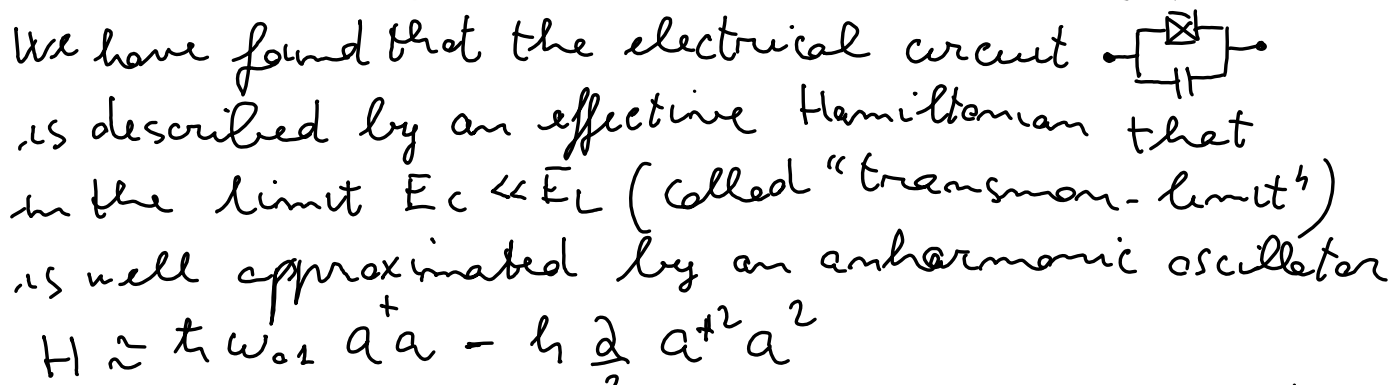 We have found that the electrical circuit
is described by an effective Hamiltonian that
in the limit Ec << EL (called "transmon-limit")
is well approximated by an anharmonic oscillator
H ≃ ħ ω₀₁ a⁺a - ħ α/2 a⁺² a²